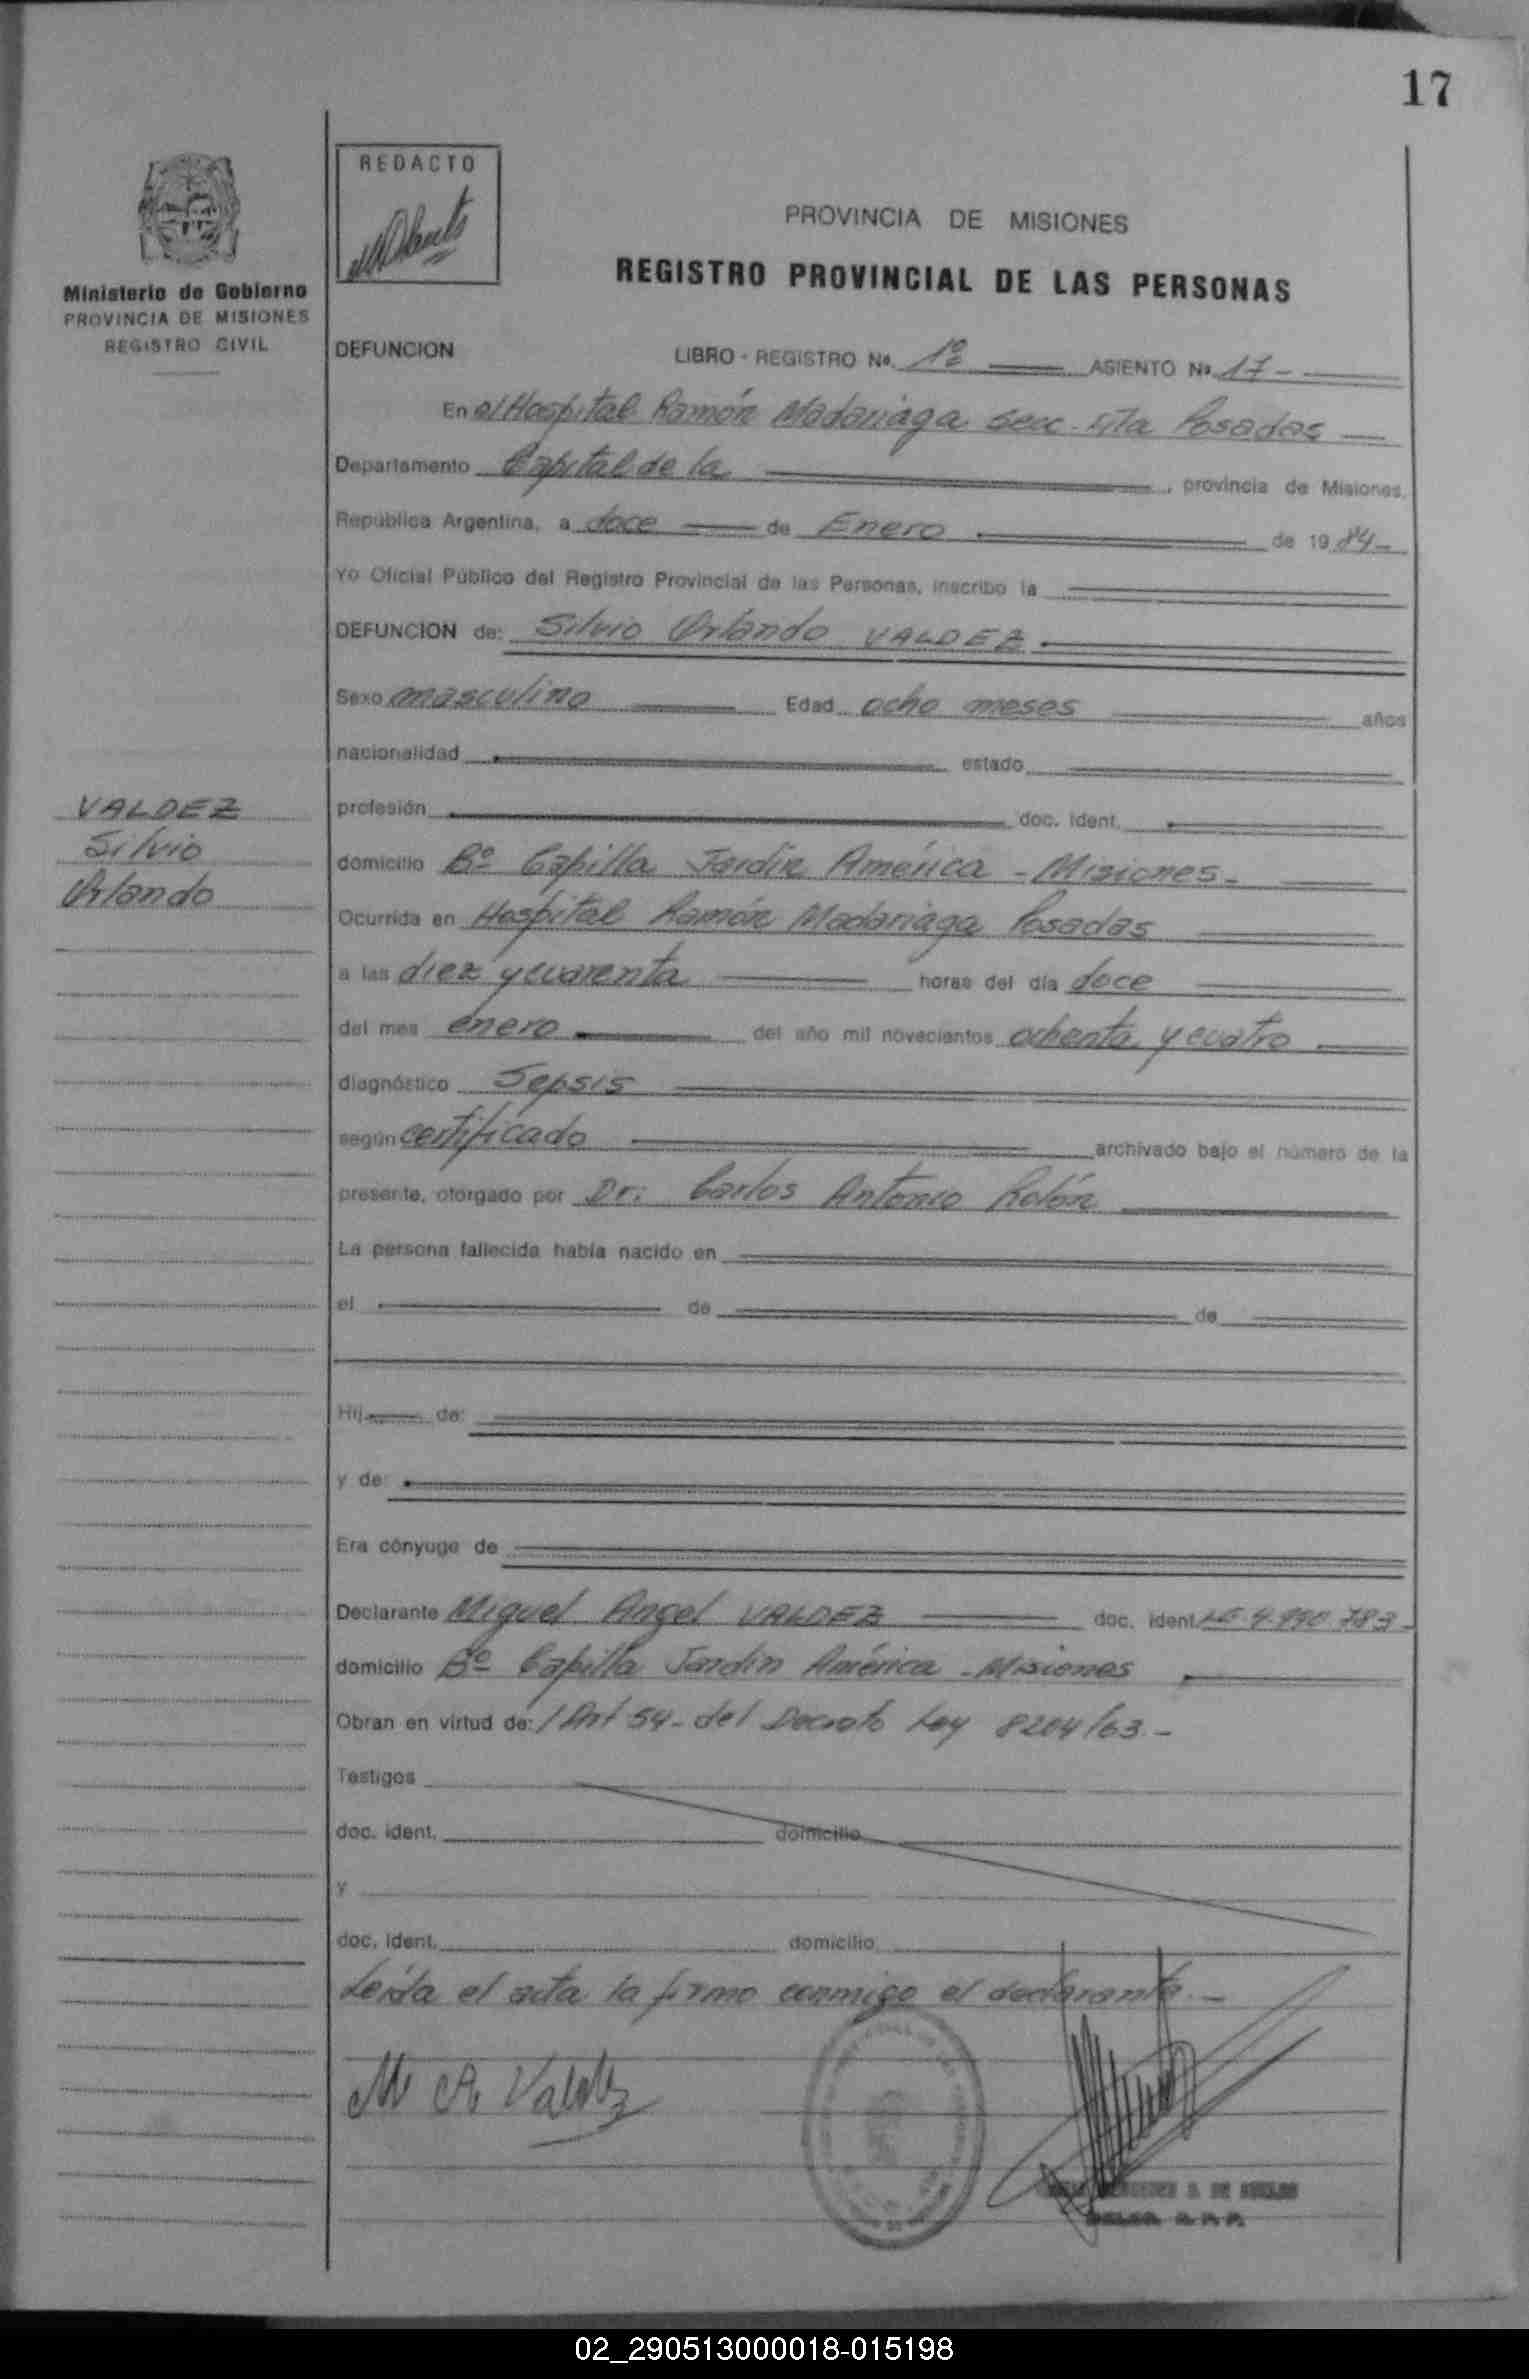 17
REDACTO
Ministerio de Gobierno
PROVINCIA DE MISIONES
REGISTRO CIVIL
PROVINCIA DE MISIONES
REGISTRO PROVINCIAL DE LAS PERSONAS
DEFUNCION LIBRO - REGISTRO Nº. 1º ASIENTO Nº 17-
En el Hospital Ramón Madariaga secc. 4ta Posadas
Departamento Capital de la , provincia de Misiones,
República Argentina, a doce de Enero de 19 84-
Yo Oficial Público del Registro Provincial de las Personas, inscribo la
DEFUNCION de: Silvio Orlando VALDEZ
Sexo masculino Edad ocho meses años
nacionalidad estado
VALDEZ
Silvio
Orlando
profesión doc. ident.
domicilio Bº Capilla Jardín América - Misiones-
Ocurrida en Hospital Ramón Madariaga Posadas
a las diez y cuarenta horas del día doce
del mes enero del año mil novecientos ochenta y cuatro
diagnóstico Sepsis
según certificado archivado bajo el número de la
presente, otorgado por Dr: Carlos Antonio Rolón
La persona fallecida había nacido en
el de de
Hij de:
y de:
Era cónyuge de
Declarante Miguel Angel VALDEZ doc. ident. LE 7.990.783-
domicilio Bº Capilla Jardín América - Misiones
Obran en virtud de: / Art 54- del Decreto Ley 8204/63.-
Testigos
doc. ident. domicilio
y
doc. ident. domicilio
Leída el acta la firma conmigo el declarante.-
M. A. Valdez
02_290513000018-015198